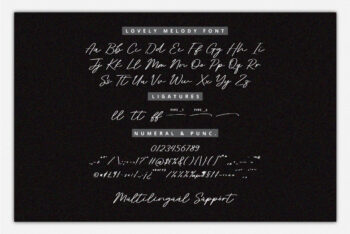 LOVELY MELODY FONT
Aa Bb Cc Dd Ee Ff Gg Hh Ii
Jj Kk Ll Mm Nn Oo Pp Qq Rr
Ss Tt Uu Vv Ww Xx Yy Zz
LIGATURES
ll tt ff
NUMERAL & PUNC.
0123456789
Multilingual Support